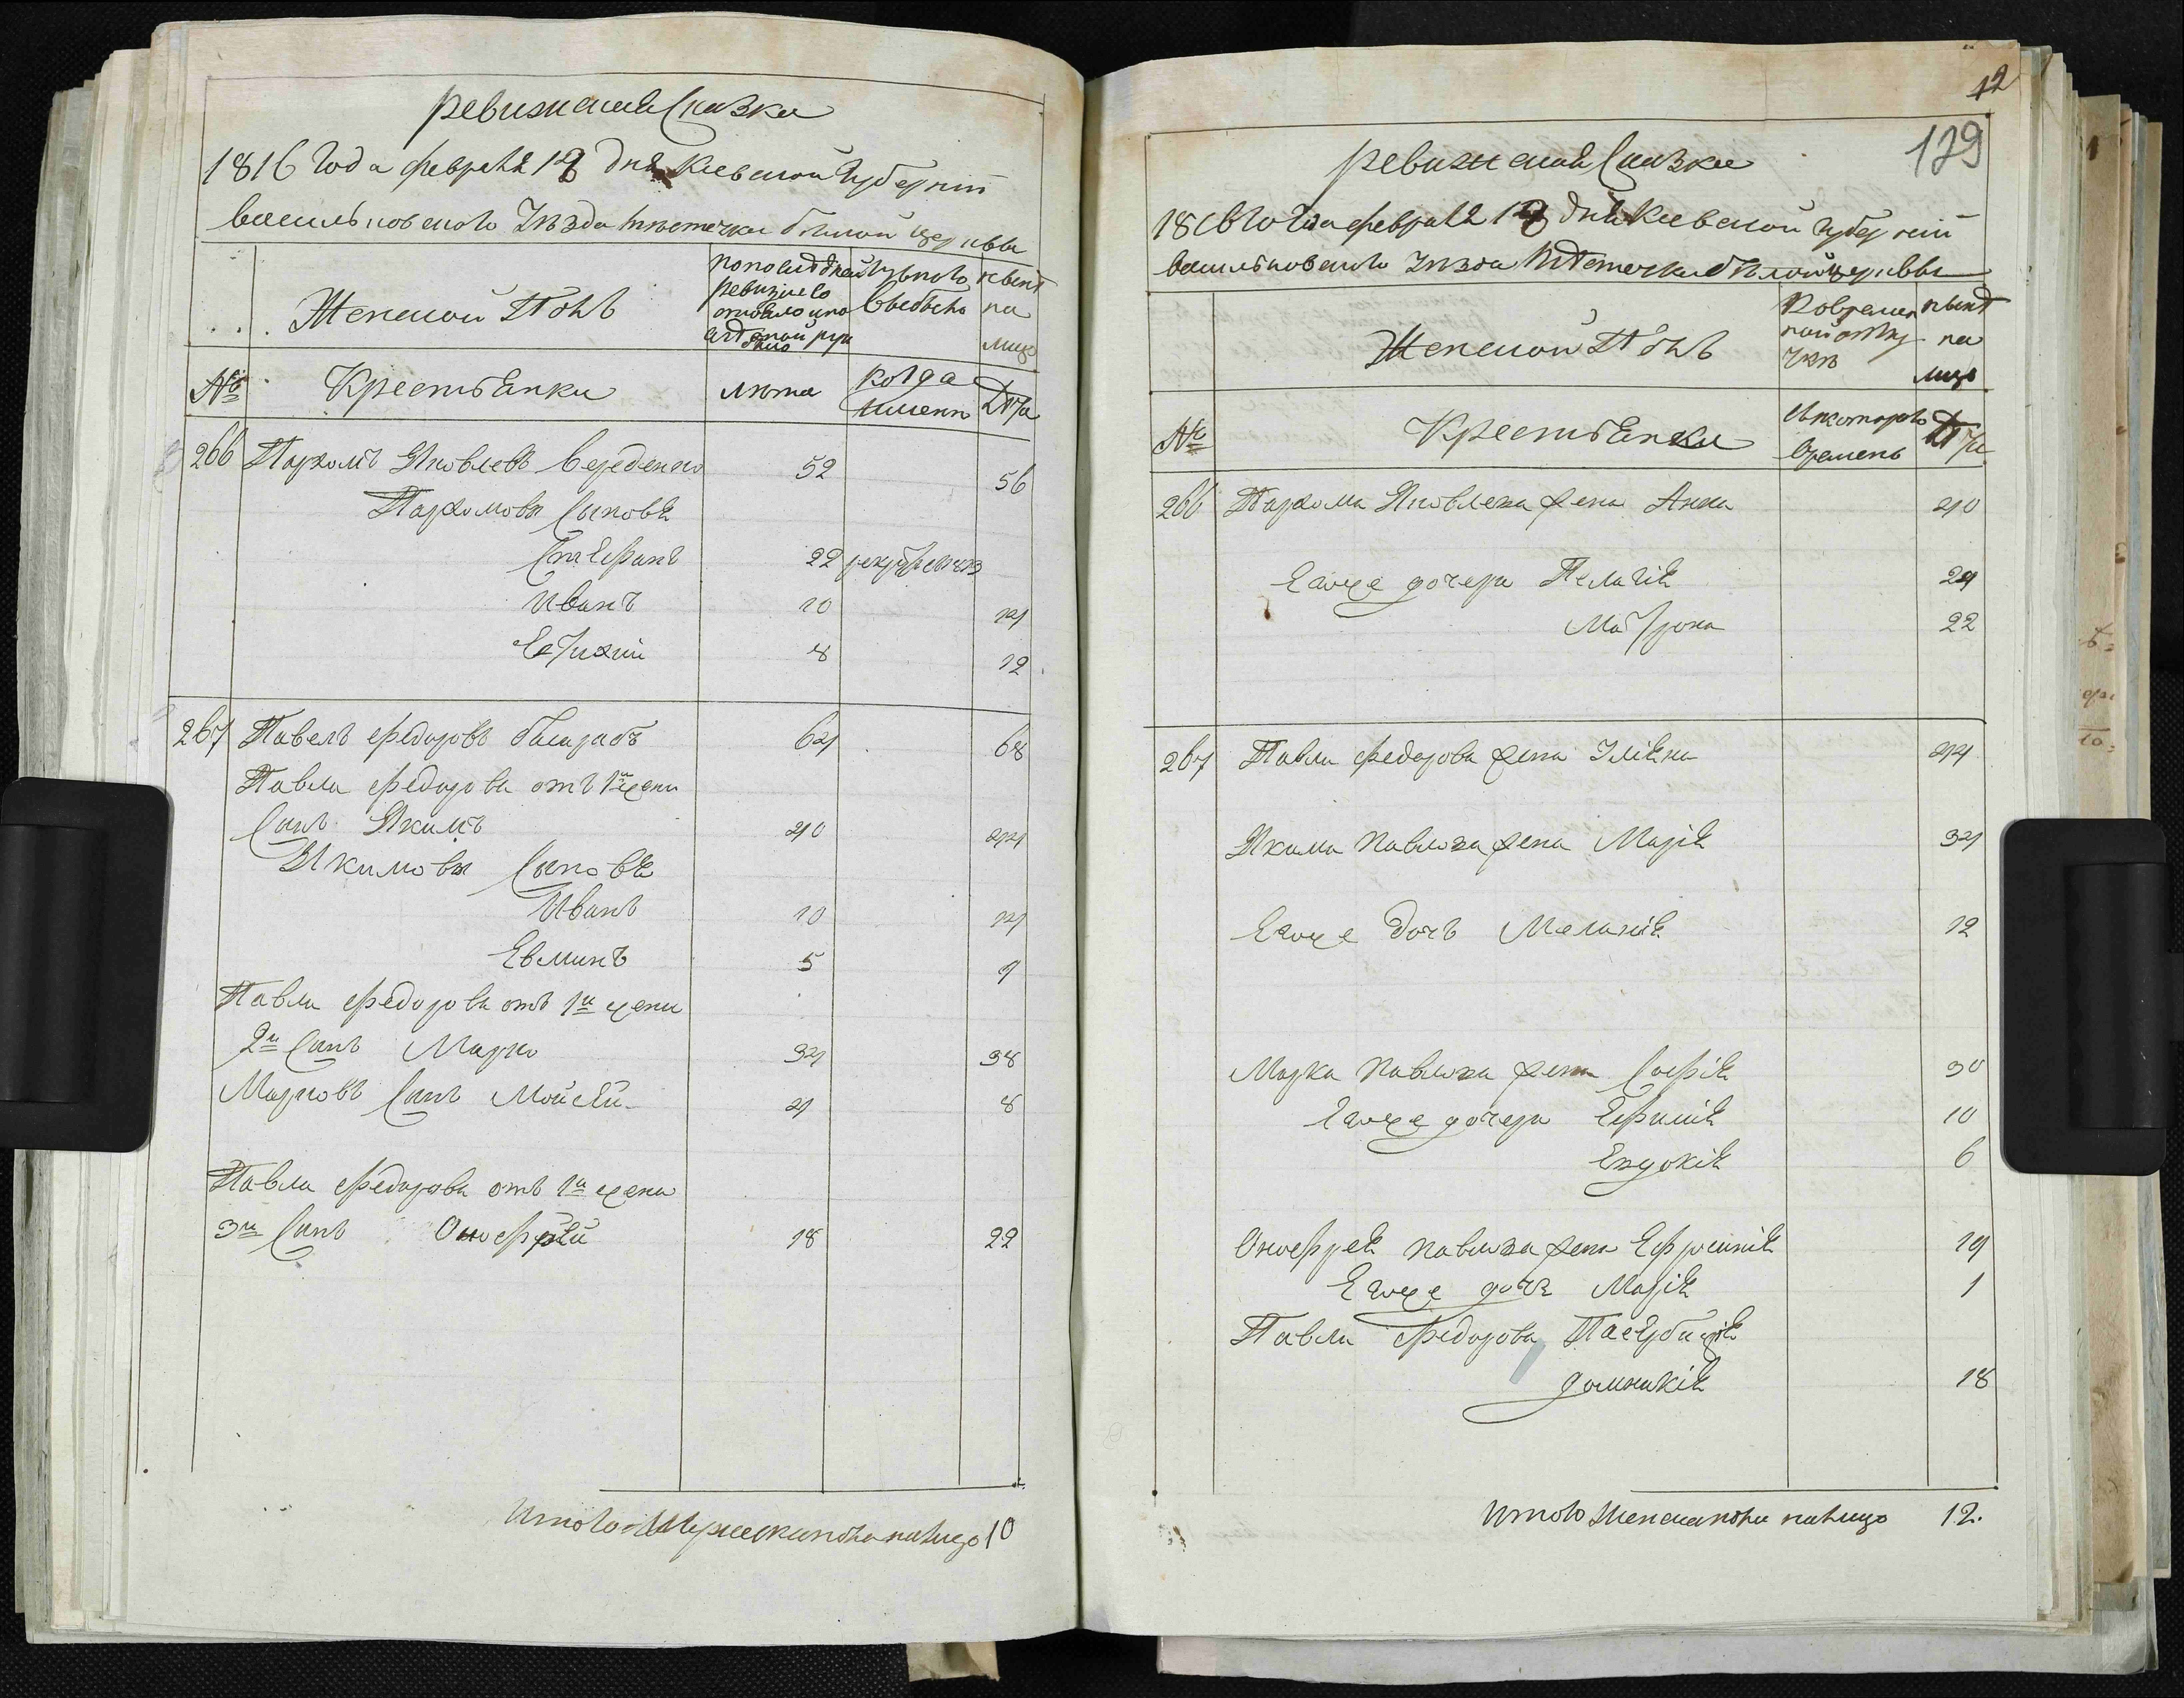 ревижская Сказка
1816 Года февраля 12 дня Киевской Губернїи
васильковского Уезда местечка белой церквы
Женской Полъ
по последней ревизие со
Изъ того выбыло
ныне на лицо
№
Крестьянки
лета
когда именно
Лета
266 Пархомъ Яковлевъ Середенко 52 56
Пархомовы Сыновья
Стефанъ 22 рекрутъ
Иванъ 10 14
Евтихий 8 12
267 Павелъ Федоровъ 64 68
Павла Федорова отъ 1й жены
Сынъ Якимъ 40 44
Якимовы Сыновья
Иванъ 10 14
Евминъ 5 9
Павла Федорова отъ 1й жены
2й Сынъ Марко 34 38
Марковъ Сынъ Мойсей 4 8
Павла Федорова отъ 1й жены
3й Сынъ Онофрѣй 18 22
Итого Мужеска пола на лицо 10
12
129
ревижская Сказка
1816го Года февраля 12 дня Киевской Губернїи
васильковского Уезда Местечка белой церквы
Женской Полъ
Во временной отлучке
ныне на лицо
№
Крестьянки
Съ которого времены
Лета
266 Пархома Яковлева жена Анна 40
Егоже дочери Пелагія 24
Мотрона 22
267 Павла Федорова жена Уліяна 44
Якима Павлова жена Марія 34
Егоже дочь Меланія 12
Марка Павлова жена Софія 30
Егоже дочери Ефимія 10
Евдокія 6
Онофрея Павлова жена Ефросинія 19
Егоже дочь Марія 1
Павла Федорова Падчерица
Домникія 18
Итого Женска пола на лицо 12.